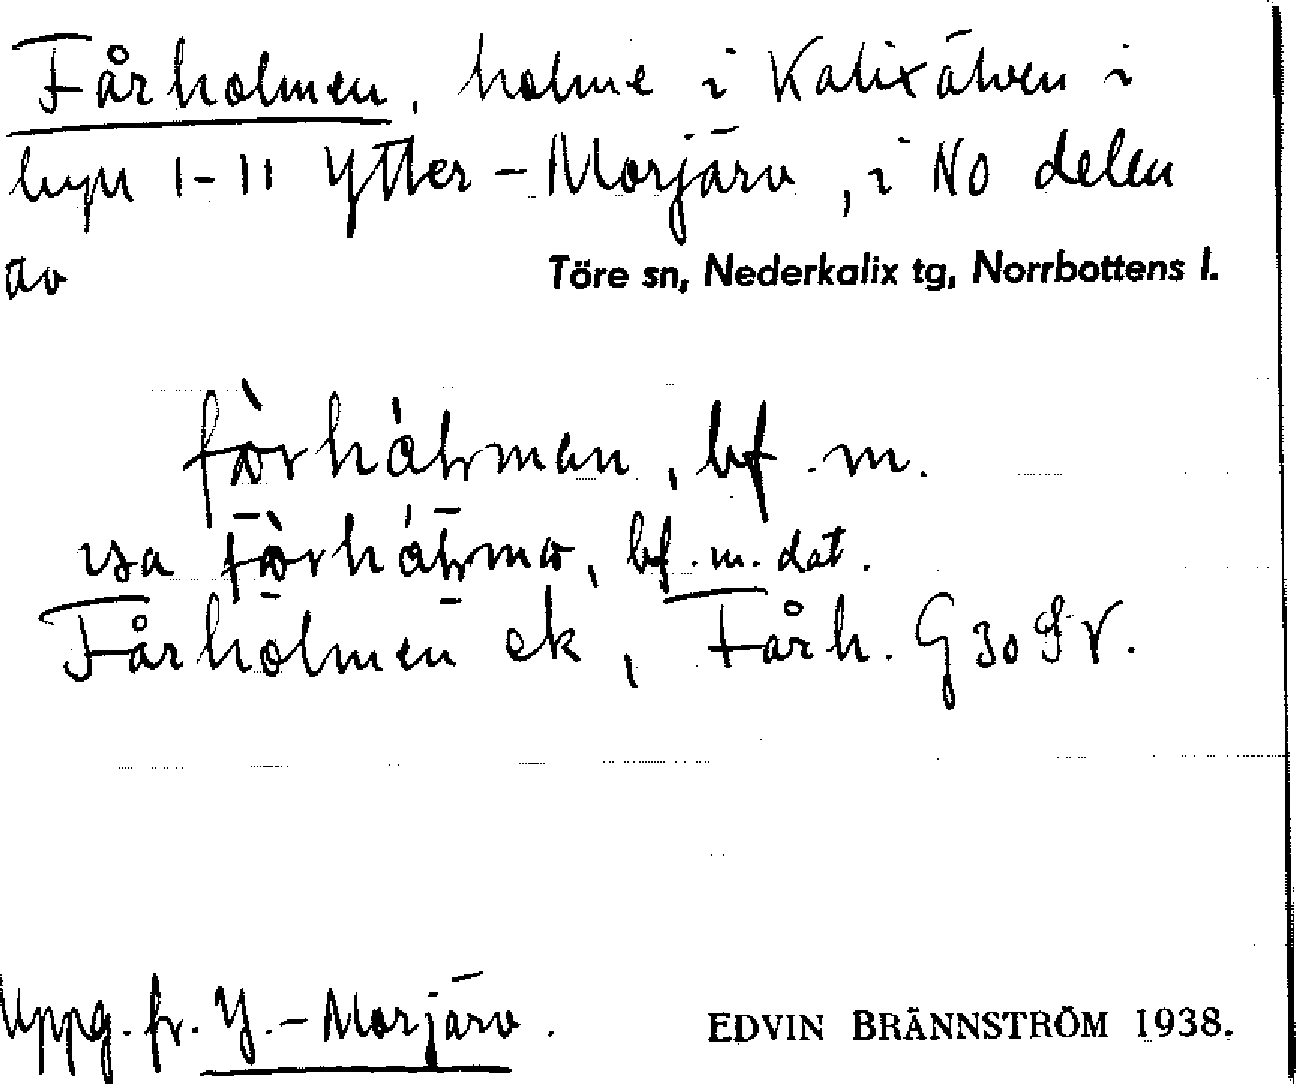 Fårholmen, holme i Kalixälven i
byn 1-11 Ytter-Morjärv, i NO delen
av Töre sn, Nederkalix tg, Norrbottens l.
bf. m.
bf. m. dat.
Fårholmen ek, Fårh. G 30
Uppg. fr. Y.-Morjärv.
EDVIN BRÄNNSTRÖM 1938.